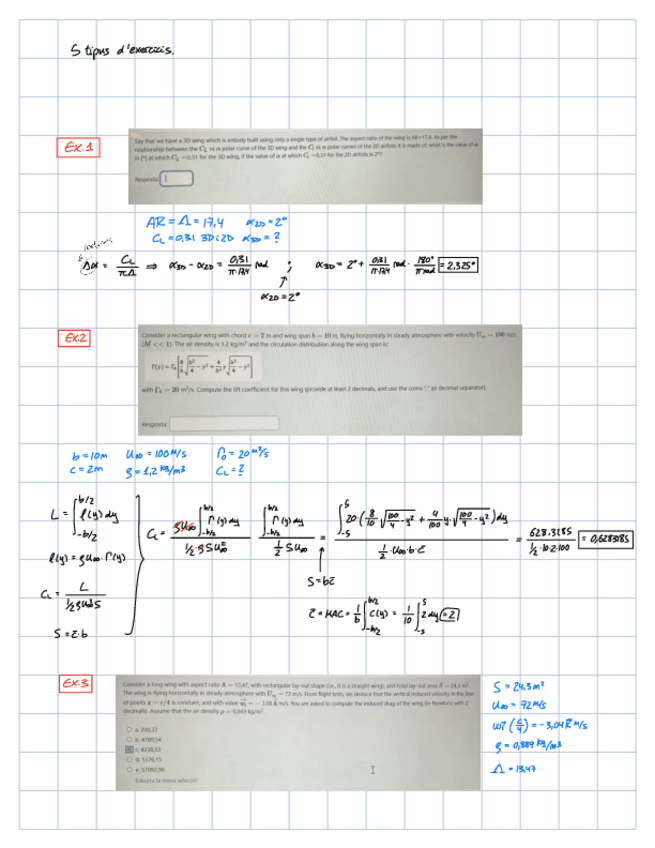 5 tipus d'exercicis.
Ex.1
Say that we have a 3D wing which is entirely built using only a single type of airfoil. The aspect ratio of the wing is AR=17,4. As per the
relationship between the C_L vs α polar curve of the 3D wing and the C_l vs α polar curves of the 2D airfoils it is made of, what is the value of α
in [º] at which C_L =0,31 for the 3D wing, if the value of α at which C_l =0,31 for the 2D airfoils is 2º?
Resposta:
AR = Λ = 17,4 α2D = 2º
CL = 0,31 3D i 2D α3D = ?
Δα = CL/πΛ ⇒ α3D - α2D = 0,31/π·17,4 rad ; α3D = 2º + 0,31/π·17,4 rad · 180º/π rad = 2,325º
α2D = 2º
Ex2
Consider a rectangular wing with chord c = 2 m and wing span b = 10 m, flying horizontally in steady atmosphere with velocity U∞ = 100 m/s
(M << 1). The air density is 1.2 kg/m³ and the circulation distribution along the wing span is:
with Γ0 = 20 m²/s. Compute the lift coefficient for this wing (provide at least 2 decimals, and use the coma "," as decimal separator).
Resposta:
b = 10m U∞ = 100 m/s Γ0 = 20 m²/s
c = 2m ρ = 1,2 kg/m³ CL = ?
L = ∫_{-b/2}^{b/2} l(y) dy
l(y) = ρU∞·Γ(y)
CL = L
S = c̄·b
S = bc̄
1/2·U∞·b·c̄
628.3185
1/2·10·2·100
= 0,628385
c̄ = MAC = 1/b ∫_{-b/2}^{b/2} c(y) = 1/10 ∫_{-5}^{5} 2dy = 2
Ex.3
Consider a long wing with aspect ratio Λ = 13,47, with rectangular lay-out shape (i.e., it is a straight wing), and total lay-out area S = 24,3 m².
The wing is flying horizontally in steady atmosphere with U∞ = 72 m/s. From flight tests, we deduce that the vertical induced velocity in the line
decimals). Assume that the air density ρ = 0.889 kg/m³.
b. 4789,54
c. 4238,53
d. 5176,15
e. 57092,96
Esborra la meva selecció
S = 24,3 m²
U∞ = 72 m/s
ρ = 0,889 kg/m³
Λ = 13,47